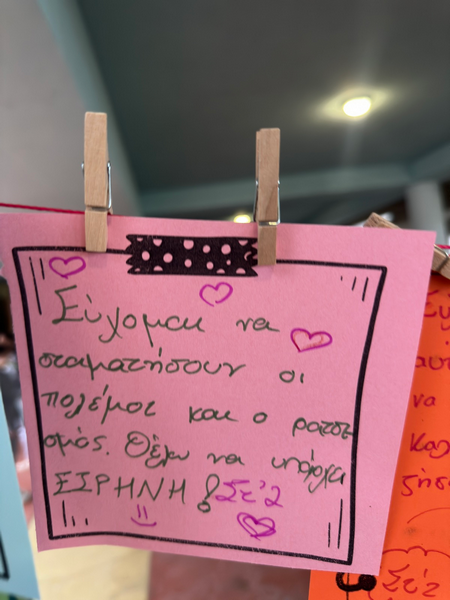 Εύχομαι να
σταματήσουν οι
πολέμοι και ο ρατσι
σμός. Θέλω να υπάρχει
ΕΙΡΗΝΗ! Στ'2
να
Στ'2